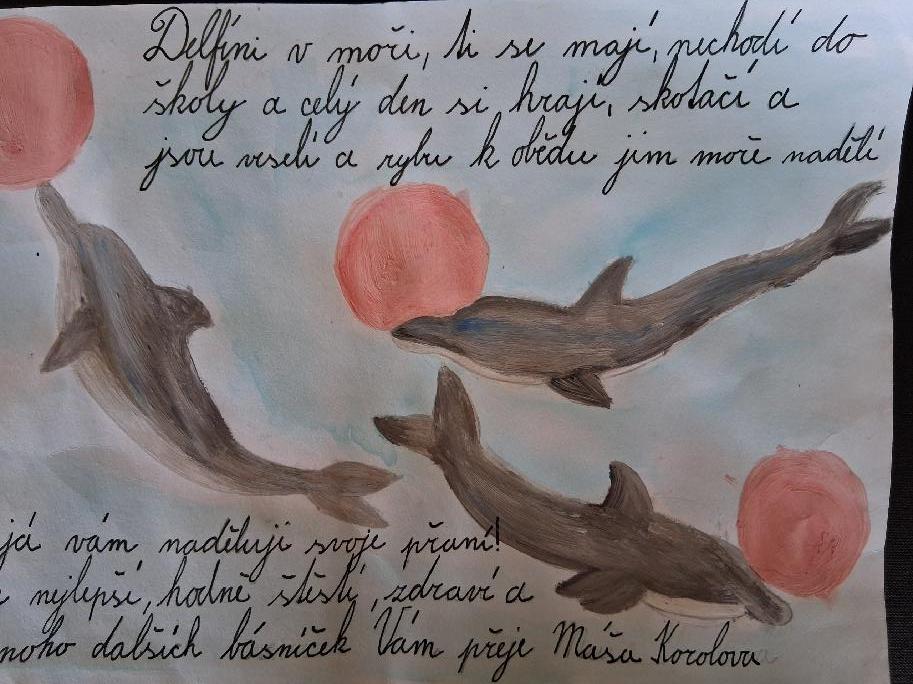 Delfíni v moři, ti se mají, nechodí do
školy a celý den si hrají, skotačí a
jsou veselí a rybu k obědu jim moře nadělí
já vám naděluji svoje přání!
nejlepší, hodně štěstí, zdraví a
mnoho dalších básniček Vám přeje Máša Korolova